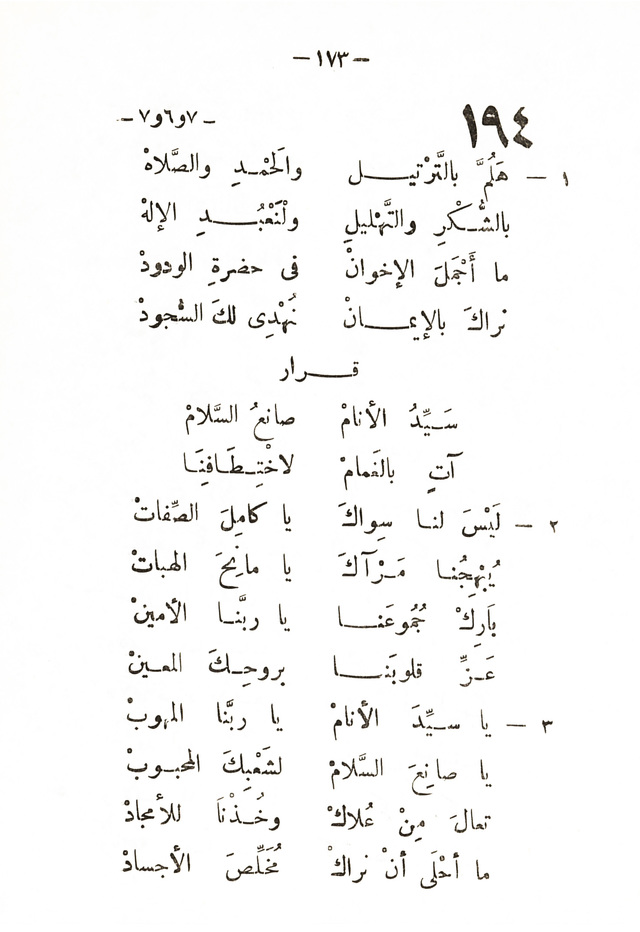 — ١٧٣ —
١٩٤ – ٧و٦و٧ –
١ — هَلُمَّ بالتَّرْتيــل والَحْمـدِ والصَّلاهْ
بالشُّكْرِ والتَّهْليلِ ولْنَعْبُــدِ الإلهْ
ما أَجْمَلَ الإخوانْ فى حضرةِ الودودْ
نراكَ بالإيمــانْ نُهْدِى لكَ السُّجودْ
قــرار
سَـيِّدُ الأنامْ صانعُ السَّلامْ
آتٍ بالغَمامْ لاخْتِـطَـافِنَـا
٢ — لَيْسَ لنـا سِواكَ يا كامِلَ الصِّفاتْ
يُبْهِجُنـا مَـرْآكَ يا مانِحَ الهباتْ
بَارِكْ جُمُوعَنــا يا ربَّنـا الأمينْ
عَـزِّ قلوبَنــا بروحِـكَ المعـينْ
٣ — يا سـيِّدَ الأنامْ يا ربَّنا المهوبْ
يا صانِعَ السَّلامْ لشَعْبِكَ المحبـوبْ
تعالَ مِنْ عُلاكْ وخُـذْنَا للأمجادْ
ما أحْلَى أنْ نراكْ مُخَلِّصَ الأجسادْ